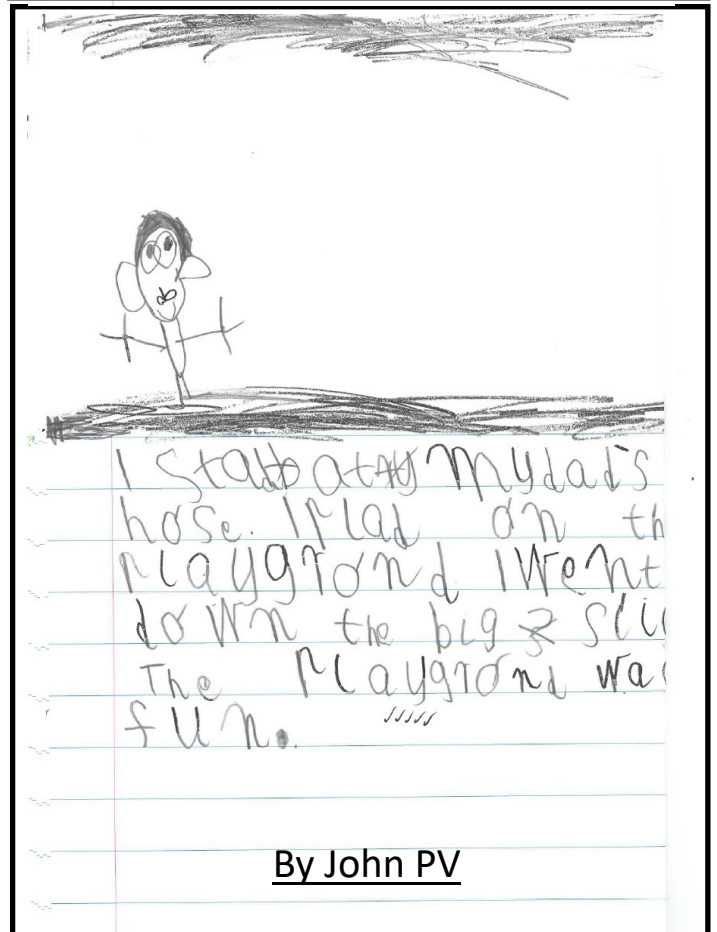 I stad at my dad's
hose. I Plad on th
Playgrond I went
down the big sli
The Playgrond wa
fun.
By John PV